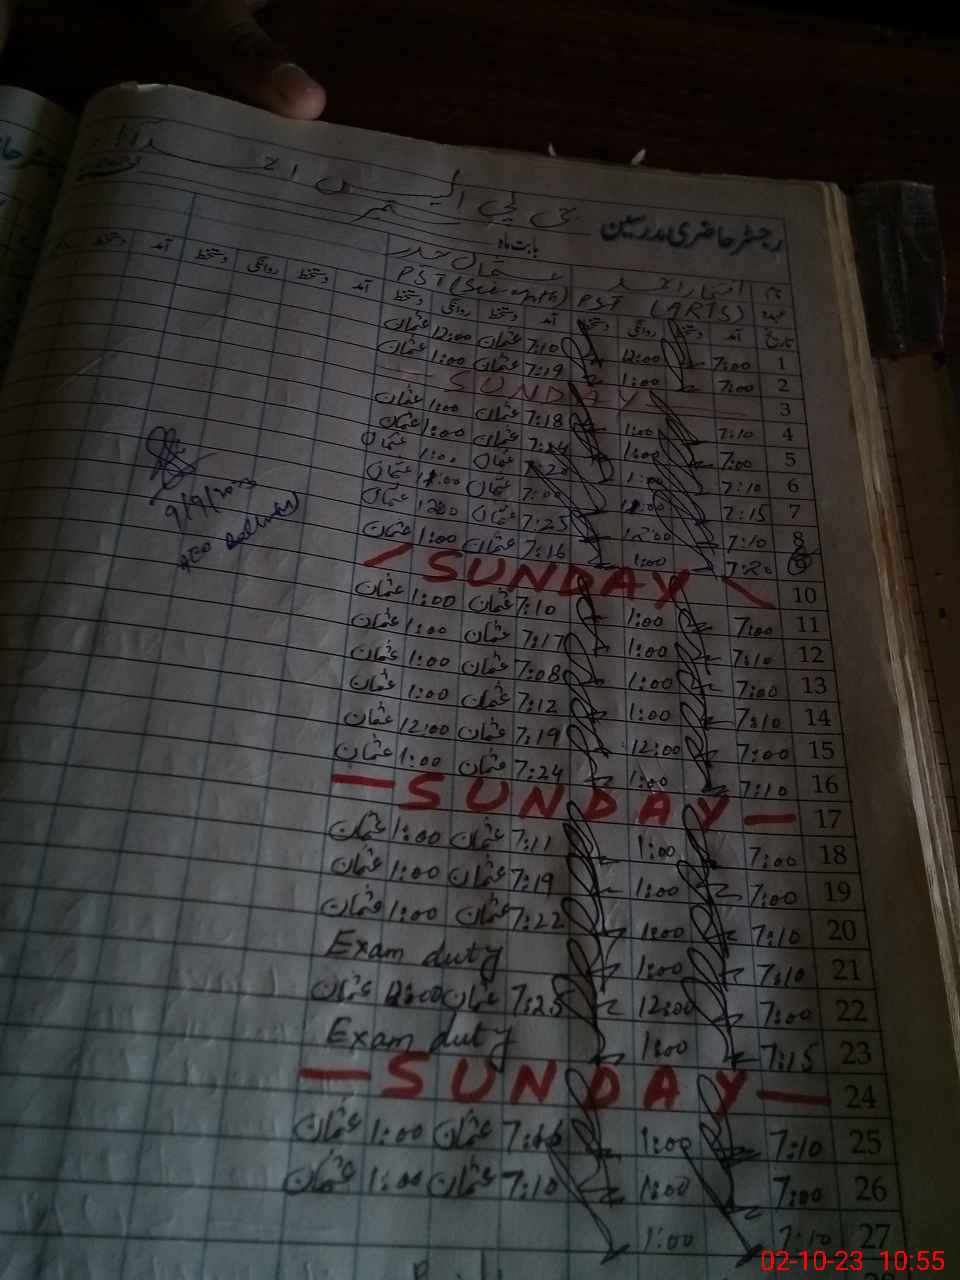 رجسٹر حاضری مدرسین
بابت ماہ ستمبر
عثمان حیدر
PST (ARTS) PST (Sci-math)
تاریخ آمد دستخط روانگی دستخط آمد دستخط روانگی دستخط آمد دستخط روانگی دستخط آمد دستخط
1 7:00 12:00 7:10 عثمان 12:00 عثمان
2 7:00 1:00 7:19 عثمان 1:00 عثمان
3 SUNDAY
4 7:10 1:00 7:18 عثمان 1:00 عثمان
5 7:00 1:00 7:24 عثمان 1:00 عثمان
6 7:10 1:00 عثمان 1:00 عثمان
7 7:15 7:00 عثمان عثمان
8 7:10 12:00 7:25 عثمان 1200 عثمان
9 7:20 1:00 7:16 عثمان 1:00 عثمان
9/9/2023
AEO
10 SUNDAY
11 7:00 1:00 7:10 عثمان 1:00 عثمان
12 7:10 1:00 7:17 عثمان 1:00 عثمان
13 7:00 1:00 7:08 عثمان 1:00 عثمان
14 7:10 1:00 7:12 عثمان 1:00 عثمان
15 7:00 12:00 7:19 عثمان 12:00 عثمان
16 7:10 1:00 7:24 عثمان 1:00 عثمان
17 — SUNDAY —
18 7:00 1:00 7:11 عثمان 1:00 عثمان
19 7:00 1:00 7:19 عثمان 1:00 عثمان
20 7:10 1:00 7:22 عثمان 1:00 عثمان
21 7:10 1:00 Exam duty
22 7:00 12:00 7:25 عثمان 12:00 عثمان
23 7:15 1:00 Exam duty
24 — SUNDAY —
25 7:10 1:00 عثمان 1:00 عثمان
26 7:00 1:00 7:10 عثمان 1:00 عثمان
27 7:10 1:00
02-10-23 10:55